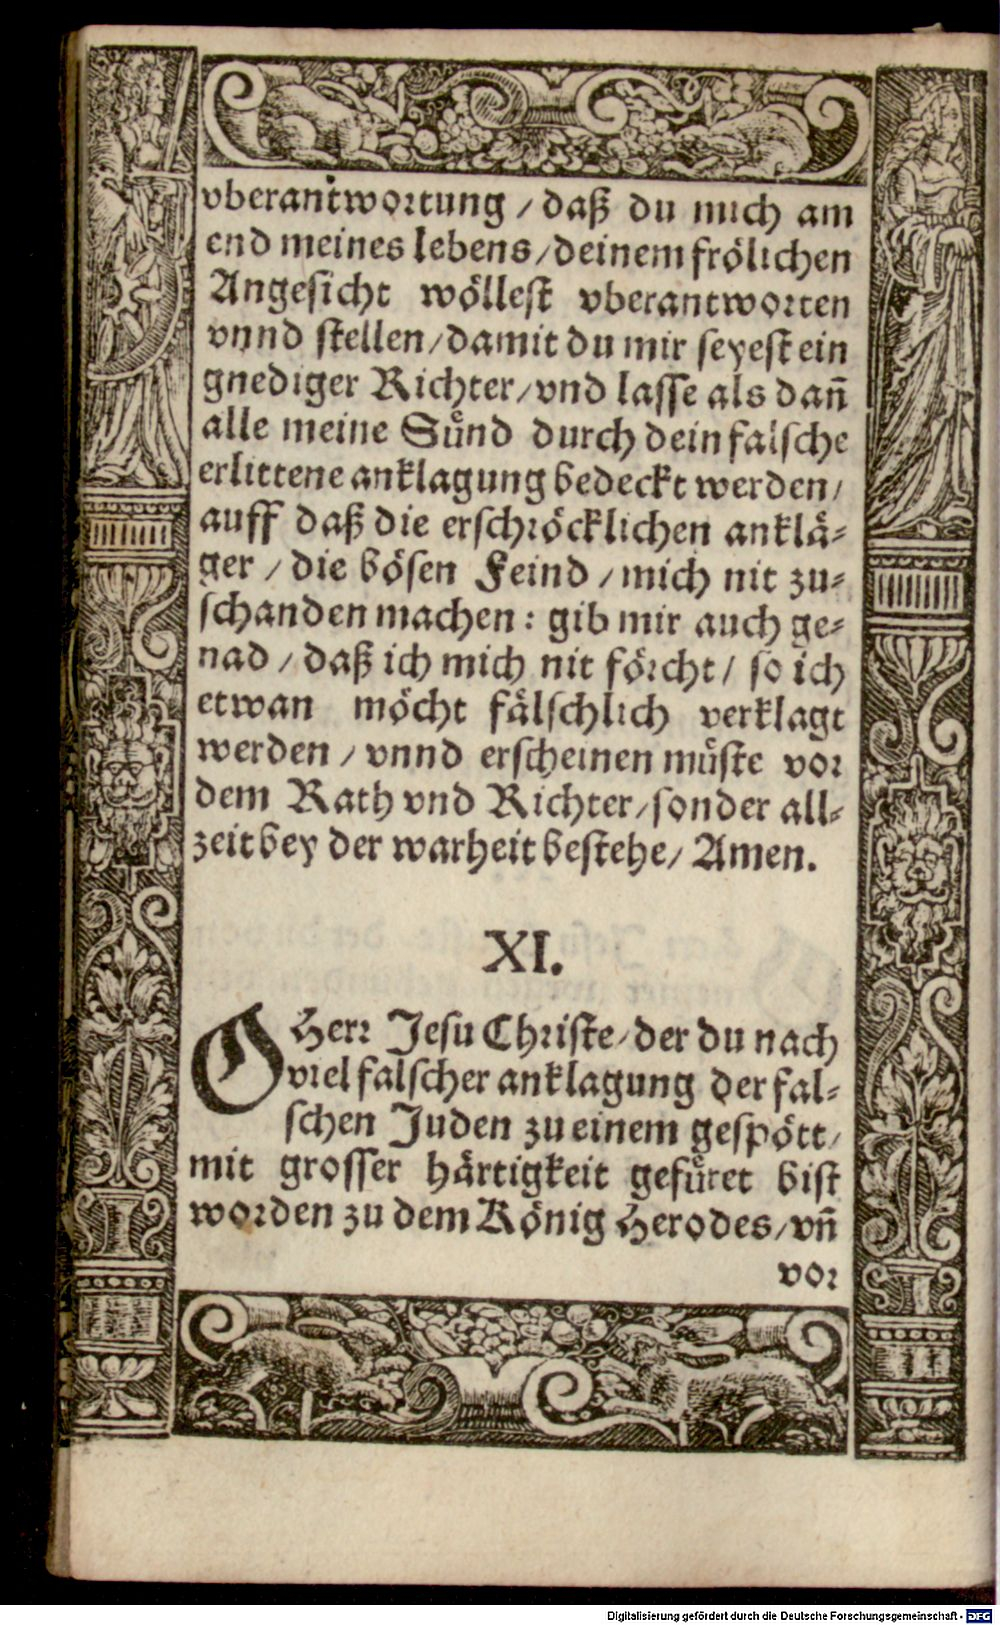 vberantwortung / daß du mich am
end meines lebens / deinem frölichen
Angesicht wöllest vberantworten
vnnd stellen / damit du mir seyest ein
gnediger Richter / vnd lasse als dan̄
alle meine Suͤnd durch dein falsche
erlittene anklagung bedeckt werden /
auff daß die erschröcklichen anklä⸗
ger / die bösen Feind / mich nit zu⸗
schanden machen : gib mir auch ge⸗
nad / daß ich mich nit förcht / so ich
etwan möcht fälschlich verklagt
werden / vnnd erscheinen müste vor
dem Rath vnd Richter / sonder all⸗
zeit bey der warheit bestehe / Amen.
XI.
O Herr Jesu Christe / der du nach
viel falscher anklagung der fal⸗
schen Juden zu einem gespött /
mit grosser härtigkeit gefuͤret bist
worden zu dem König Herodes / vn̄
vor
Digitalisierung gefördert durch die Deutsche Forschungsgemeinschaft - DFG